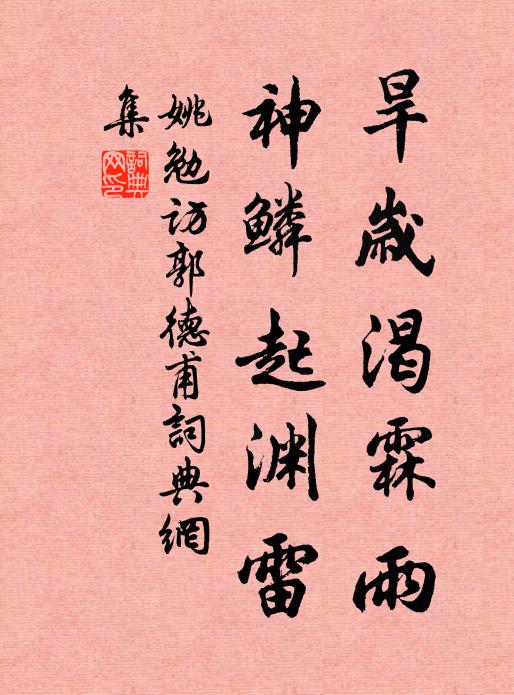 旱歲渴霖雨
神鱗起渊雷
姚勉訪郭德甫詞典網
集
詞典
网印